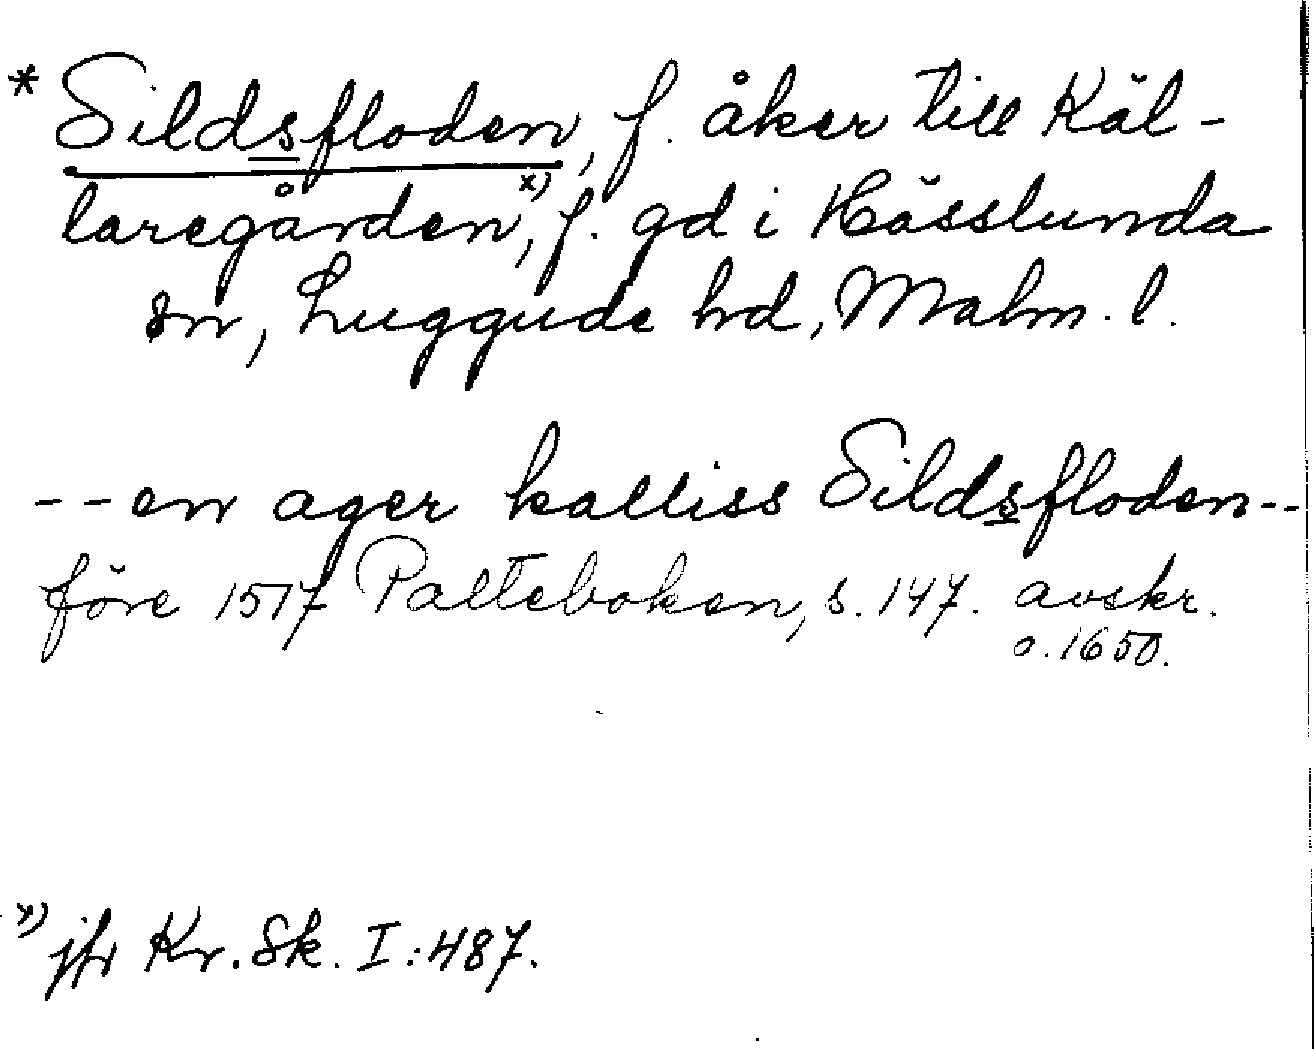 * Sildsfloden, f. åker till Käl-
laregården, x) f. gd i Hässlunda
sn, Luggude hd, Malm. l.
--en ager kalliss Sildsfloden--
före 1517 Palteboken, s. 147. avskr.
o. 1650.
x) jfr Kr. Sk. I:487.